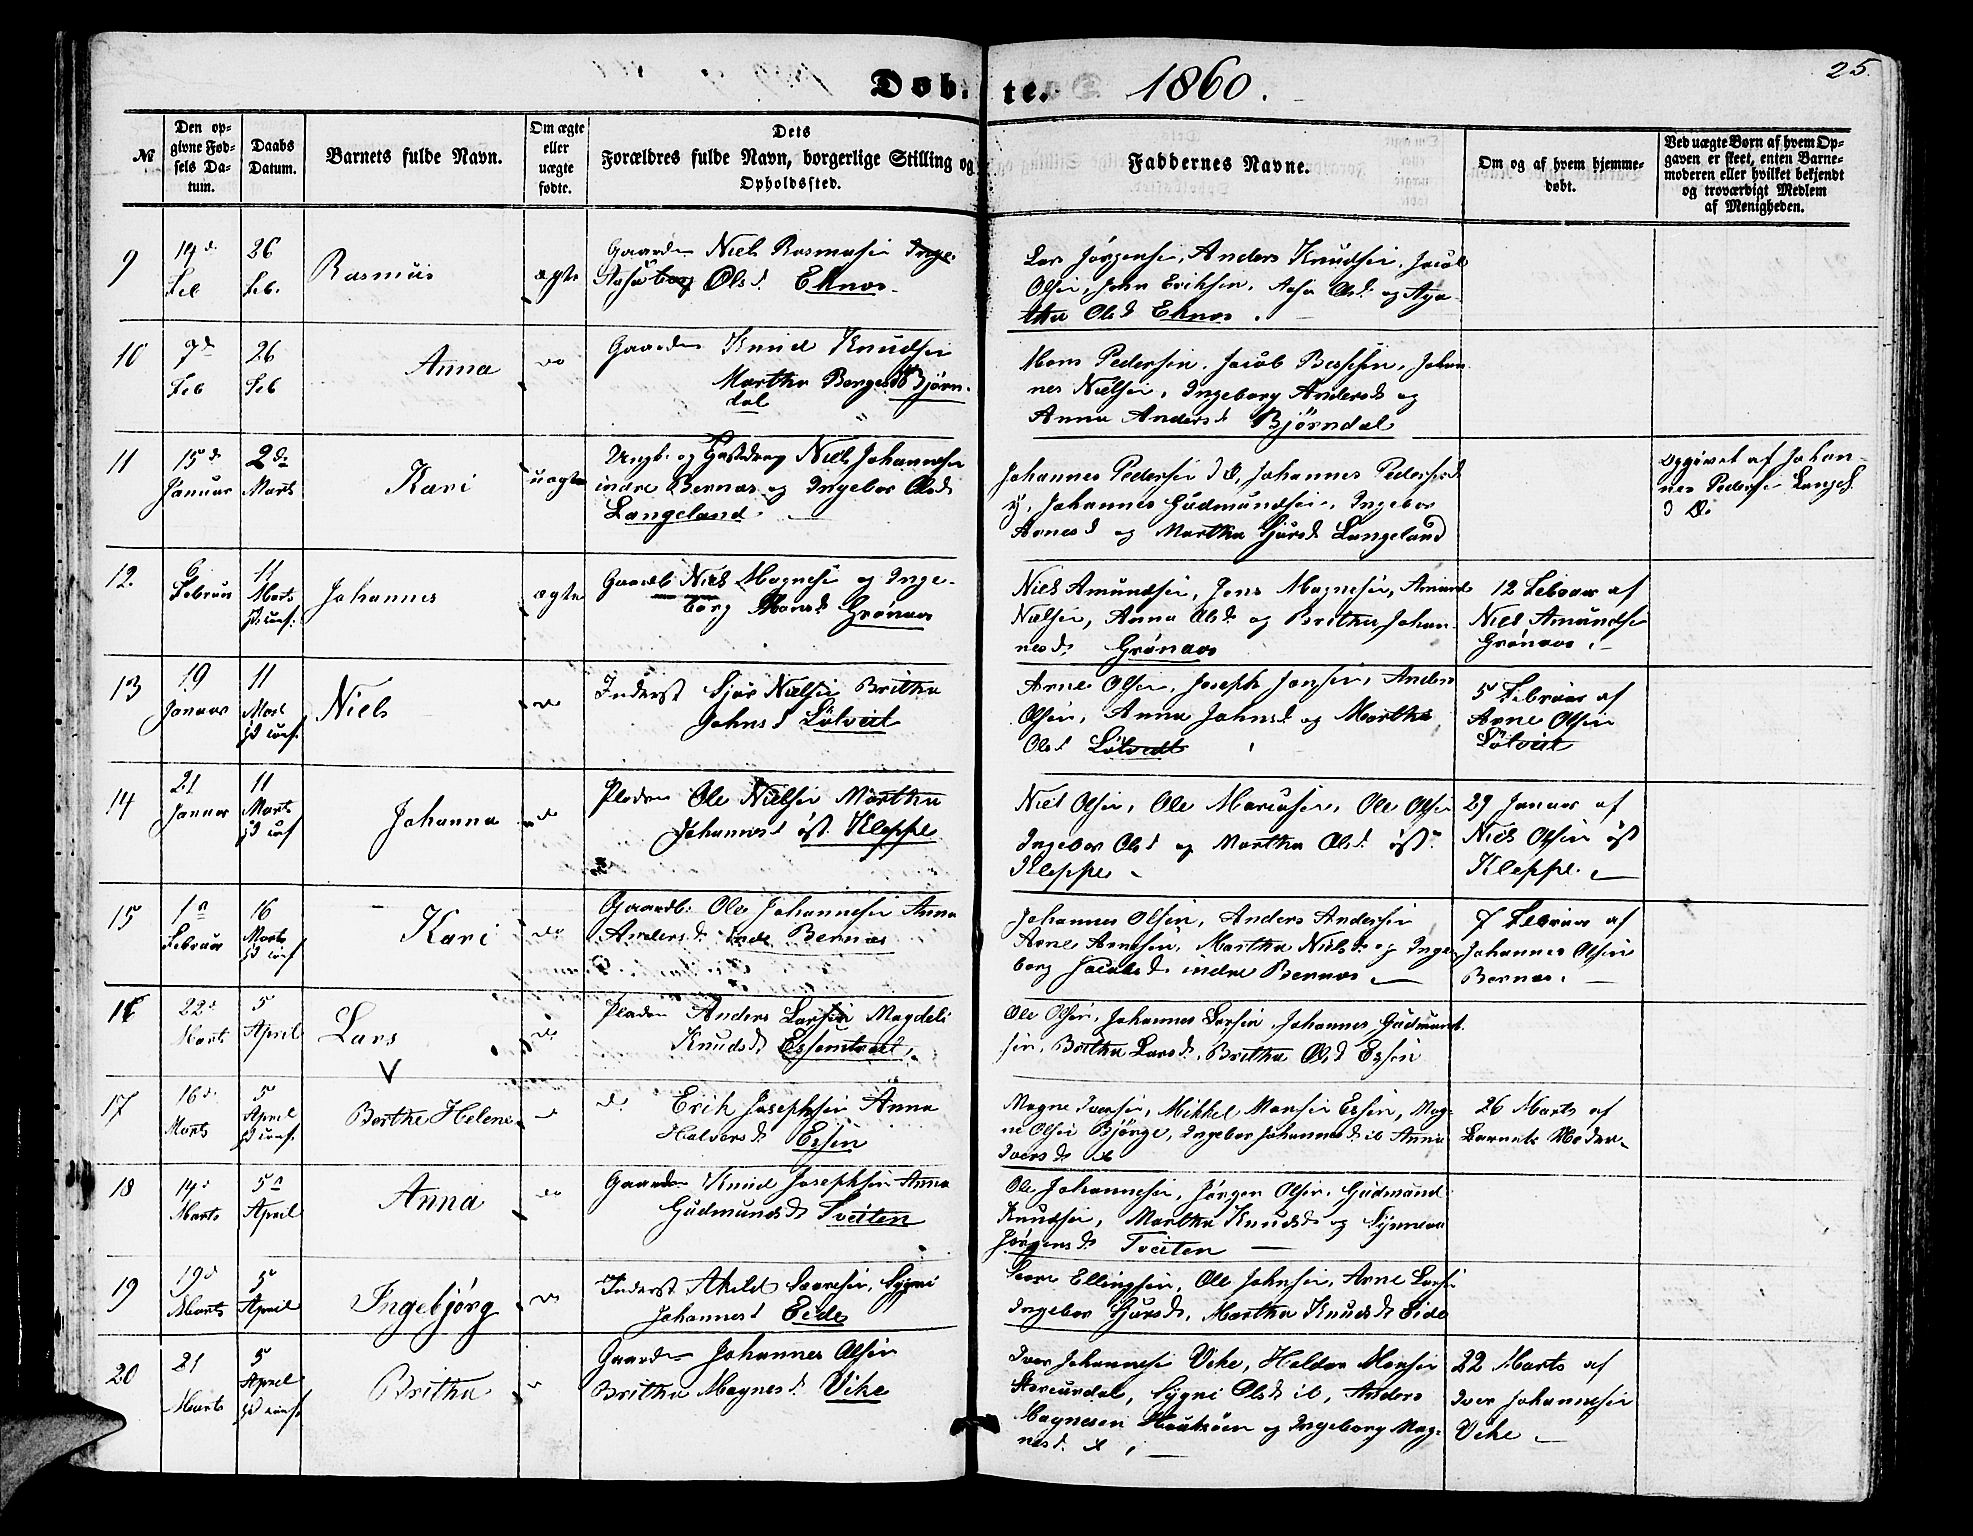 Døbte. 1860.
25.
№ Den opgivne Fødsels Datum. Daabs Datum. Barnets fulde Navn. Om ægte eller uægte fødte. Dets Forældres fulde Navn, borgerlige Stilling og Opholdssted. Faddernes Navne. Om og af hvem hjemmedøbt. Ved uægte Børn af hvem Opgaven er skeet, enten Barnemoderen eller hvilket bekjendt og troværdigt Medlem af Menigheden.
9 19d Feb 26 Feb. Rasmus ægte
Niels Rasmusen
Olsd. Eknæs
Jørgensen, Anders Knudsen, Jacob
Olsen, Eriksen, Olsd. og Aga-
tha Olsd Eknæs.
10 7d Feb 26 Feb Anna do
Knud Knudsen
Martha Børgesd Bjørn-
dal
Mons Pedersen, Jacob Johan
nes Nielsen, Ingeborg Andersd og
Anna Andersd Bjørndal
11 15d Januar 2den Marts Kari uægte
Ungk. og Niels Johannesen
indre Bernæs og Ingebor Olsd
Langeland.
Johannes Pedersen d Æ, Johannes Pedersen d
y, Johannes Gudmundsen, Ingebor
Arnesd og Martha Sjursd Langeland
Opgivet af Johan-
nes Pedersen Langel.
d Æ.
12. 6 Februar 11 Marts Johannes ægte
Gaardb. Niels Magnesen og Inge-
borg Monsd Grønaas
Niels Amundsen, Jens Magnesen, Amund
Nielsen, Anna Olsd og Britha Johan-
nesd. Grønaas
12 Februar af
Niels Amundsen
Grønaas
13 19 Januar 11 Marts Niels do
Inderst Sjur Nielsen Britha
Johnsd Lötveit
Arne Olsen, Joseph Jonsen, Anders
Olsen, Anna Johnsd og Martha
Olsd Lötvedt
5 Februar af
Arne Olsen
Lötveit
14 21 Januar 11 Marts Johanna do
Pladsm Ole Nielsen Martha
Johannesd øst. Kleppe
Niels Olsen, Ole Olsen
Ingebor Olsd og Martha Olsd øst.
Kleppe
29 Januar af
Niels Olsen øst
Kleppe.
15 1n Februar 16 Marts Kari do
Gaardb. Ole Johannesen Anna
Andersd. indr Bernæs
Johannes Olsen, Anders Andersen
Arne Arnesen, Martha Nielsd. og Inge-
borg Jacobsd. indre Bernæs
7 Februar af
Johannes Olsen
Bernæs.
16 22d Marts 5 April Lars do
Pladsm Anders Larsen Magdeli
Knudsd.
Ole Olsen, Johannes Larsen, Johannes Gudmund
sen, Britha Larsd, Britha Olsd Essen
V
17 16d Marts 5 April Berthe Helene
d. Erik Josephsen Anna
Halvorsd Essen
Magne Iversen, Mikkel Monsen Essen, Mag-
ne Olsen Bjørge, Ingebor Johannesd ib Anna
Iversd ib
26 Marts af
Barnets Moder
18 14d Marts 5n April Anna do
Gaardm Knud Josephsen Anna
Gudmundsd Tveiten
Ole Johannesen, Jørgen Olsen, Gudmund
Knudsen, Martha Knudsd og Synneva
Jørgensd. Tveiten
19 19d Marts 5 April Ingebjörg do
Inderst Sygni
Johannesd Eide
Ellingsen, Ole Johnsen, Arne Larsen
Ingebor Sjursd, Martha Knudsd Eide
20 21 Marts 5 April Britha
Gaardm Johannes Olsen
Britha Magnesd. Vike
Iver Johannesen Vike, Haldor Monsen
Sygni Olsd ib, Anders
Magnesen og Ingeborg Mag-
nesd. ib
22 Marts af
Iver Johannesen
Vike